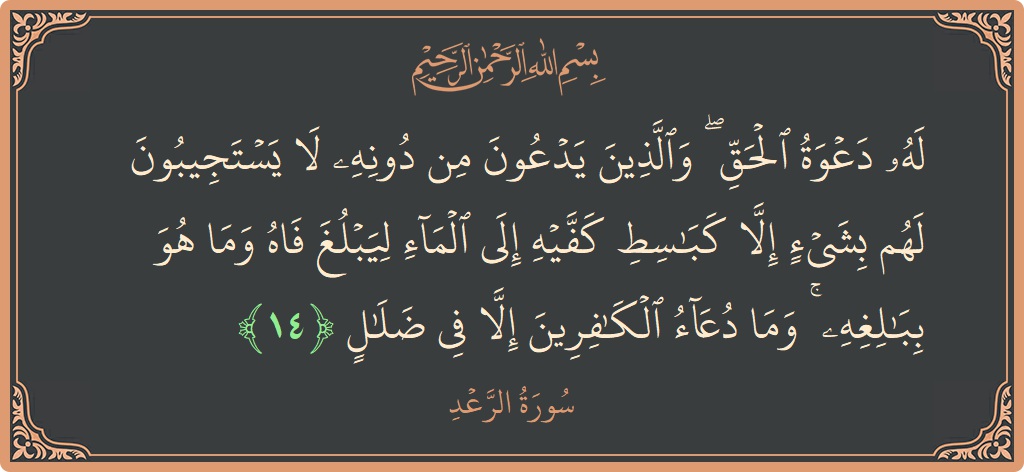 بِسْمِ اللَّهِ الرَّحْمَٰنِ الرَّحِيمِ
لَهُۥ دَعْوَةُ ٱلْحَقِّ ۖ وَٱلَّذِينَ يَدْعُونَ مِن دُونِهِۦ لَا يَسْتَجِيبُونَ
لَهُم بِشَىْءٍ إِلَّا كَبَٰسِطِ كَفَّيْهِ إِلَى ٱلْمَآءِ لِيَبْلُغَ فَاهُ وَمَا هُوَ
بِبَٰلِغِهِۦ ۚ وَمَا دُعَآءُ ٱلْكَٰفِرِينَ إِلَّا فِى ضَلَٰلٍ ﴿١٤﴾
سُورَةُ الرَّعْدِ